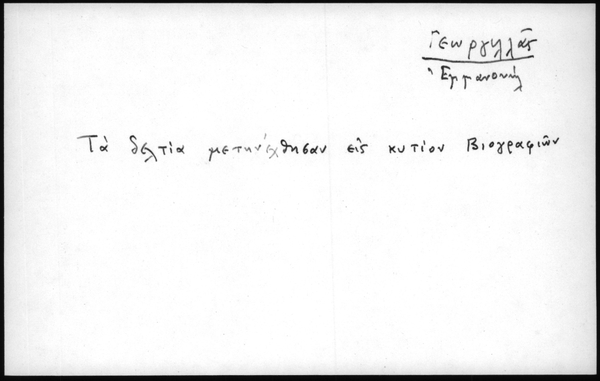 Γεωργιλλᾶς
Ἐμμανουὴλ
Τὰ δελτία μετηνέχθησαν εἰς κυτίον Βιογραφιῶν